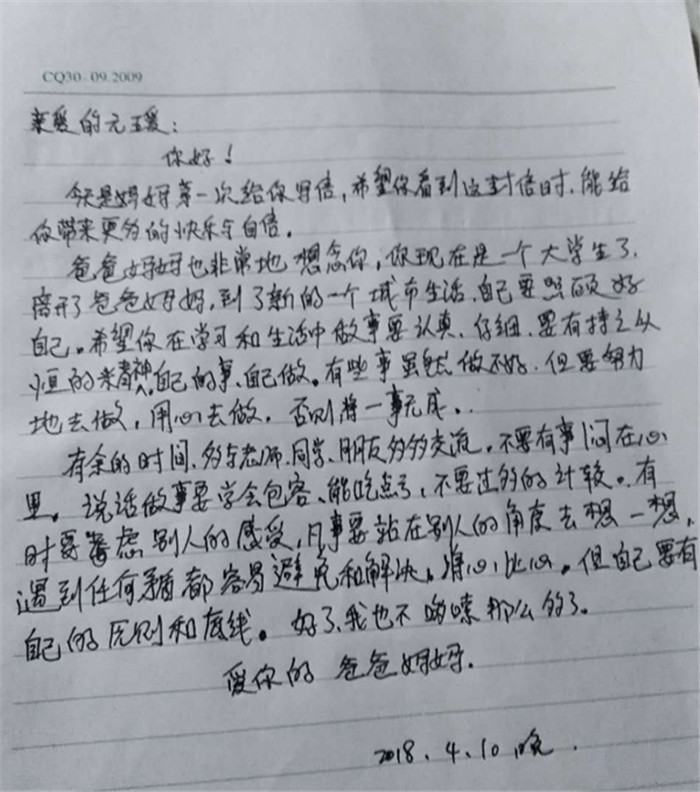 CQ30-09.2009
亲爱的元瑗：
你好！
今天是妈妈第一次给你写信，希望你看到这封信时、能给
你带来更多的快乐与自信。
爸爸妈妈也非常地想念你，你现在是一个大学生了、
离开了爸爸妈妈，到了新的一个城市生活、自己要照顾好
自己。希望你在学习和生活中做事要认真、仔细、要有持之以
恒的精神。自己的事、自己做。有些事虽然做不好、但要努力
地去做，用心去做，否则将一事无成。
有余的时间、多与老师、同学、朋友多多交流。不要有事闷在心
里。说话做事要学会包容、能吃点亏，不要过多的计较。有
时要考虑别人的感受，凡事要站在别人的角度去想一想，
遇到任何矛盾都容易避免和解决。将心比心。但自己要有
自己的原则和底线。好了、我也不啰嗦那么多了。
爱你的爸爸妈妈.
2018、4、10晚.